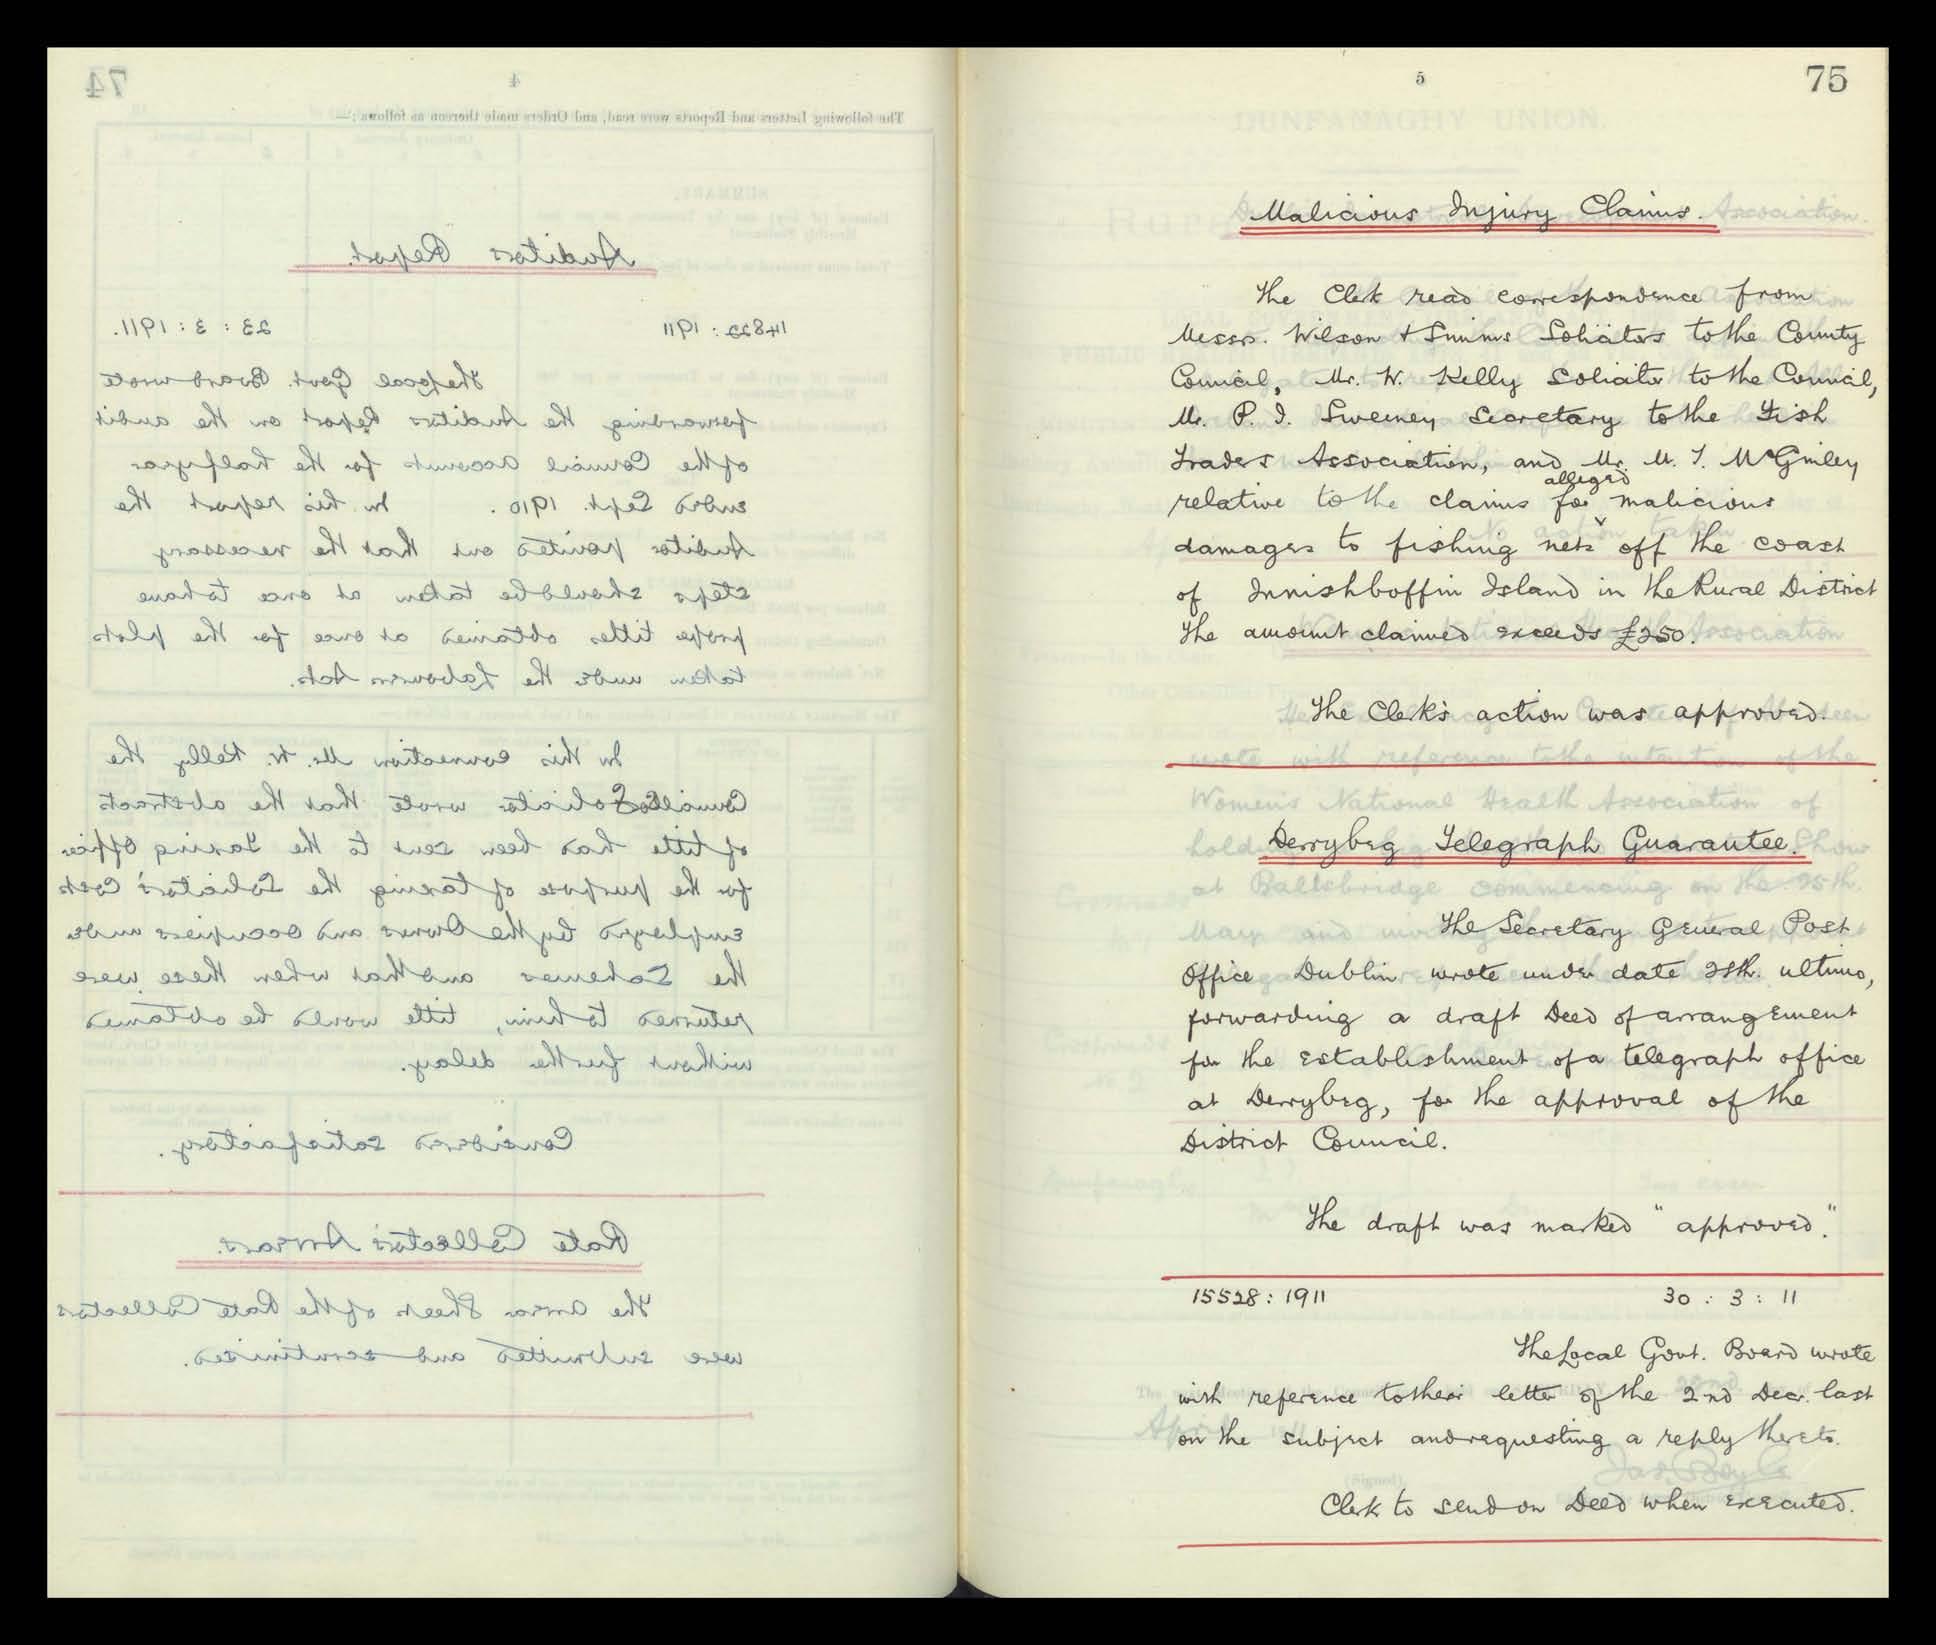 74
4
The following Letters and Reports were read, and Orders made thereon as follows :—
Auditors Report.
14822 : 1911 23 : 3 : 1911.
The Local Govt. Board wrote
forwarding the Auditors Report on the audit
of the Council accounts for the half year
ended Sept. 1910. In his report the
Auditor pointed out that the necessary
steps should be taken at once to have
proper titles obtained at once for the plots
taken under the Labourers Acts.
In this connection Mr. W. Kelly the
Council Solicitor wrote that the abstract
of title has been sent to the Taxing Officer
for the purpose of taxing the Solicitors' Costs
employed by the Owners and occupiers under
the Schemes and that when these were
returned to him, title would be obtained
without further delay.
Considered satisfactory.
Rate Collectors' Arrears.
The arrear sheets of the Rate Collectors
were submitted and scrutinised.
5
75
Malicious Injury Claims.
The Clerk read correspondence from
Messrs. Wilson & Simms Solicitors to the County
Council, Mr. W. Kelly Solicitor to the Council,
Mr. P. J. Sweeney Secretary to the Fish
Traders Association, and Mr. M. J. McGinley
alleged
relative to the claims for malicious
damages to fishing nets off the coast
of Innishboffin Island in the Rural District
The amount claimed exceeds £250.
The Clerk's action was approved.
Derrybeg Telegraph Guarantee.
The Secretary General Post
Office Dublin wrote under date 28th. ultimo,
forwarding a draft Deed of arrangement
for the establishment of a telegraph office
at Derrybeg, for the approval of the
District Council.
The draft was marked "approved."
15528 : 1911 30 : 3 : 11
The Local Govt. Board wrote
with reference to their letter of the 2nd Decr. last
on the subject and requesting a reply thereto.
Clerk to send on Deed when executed.